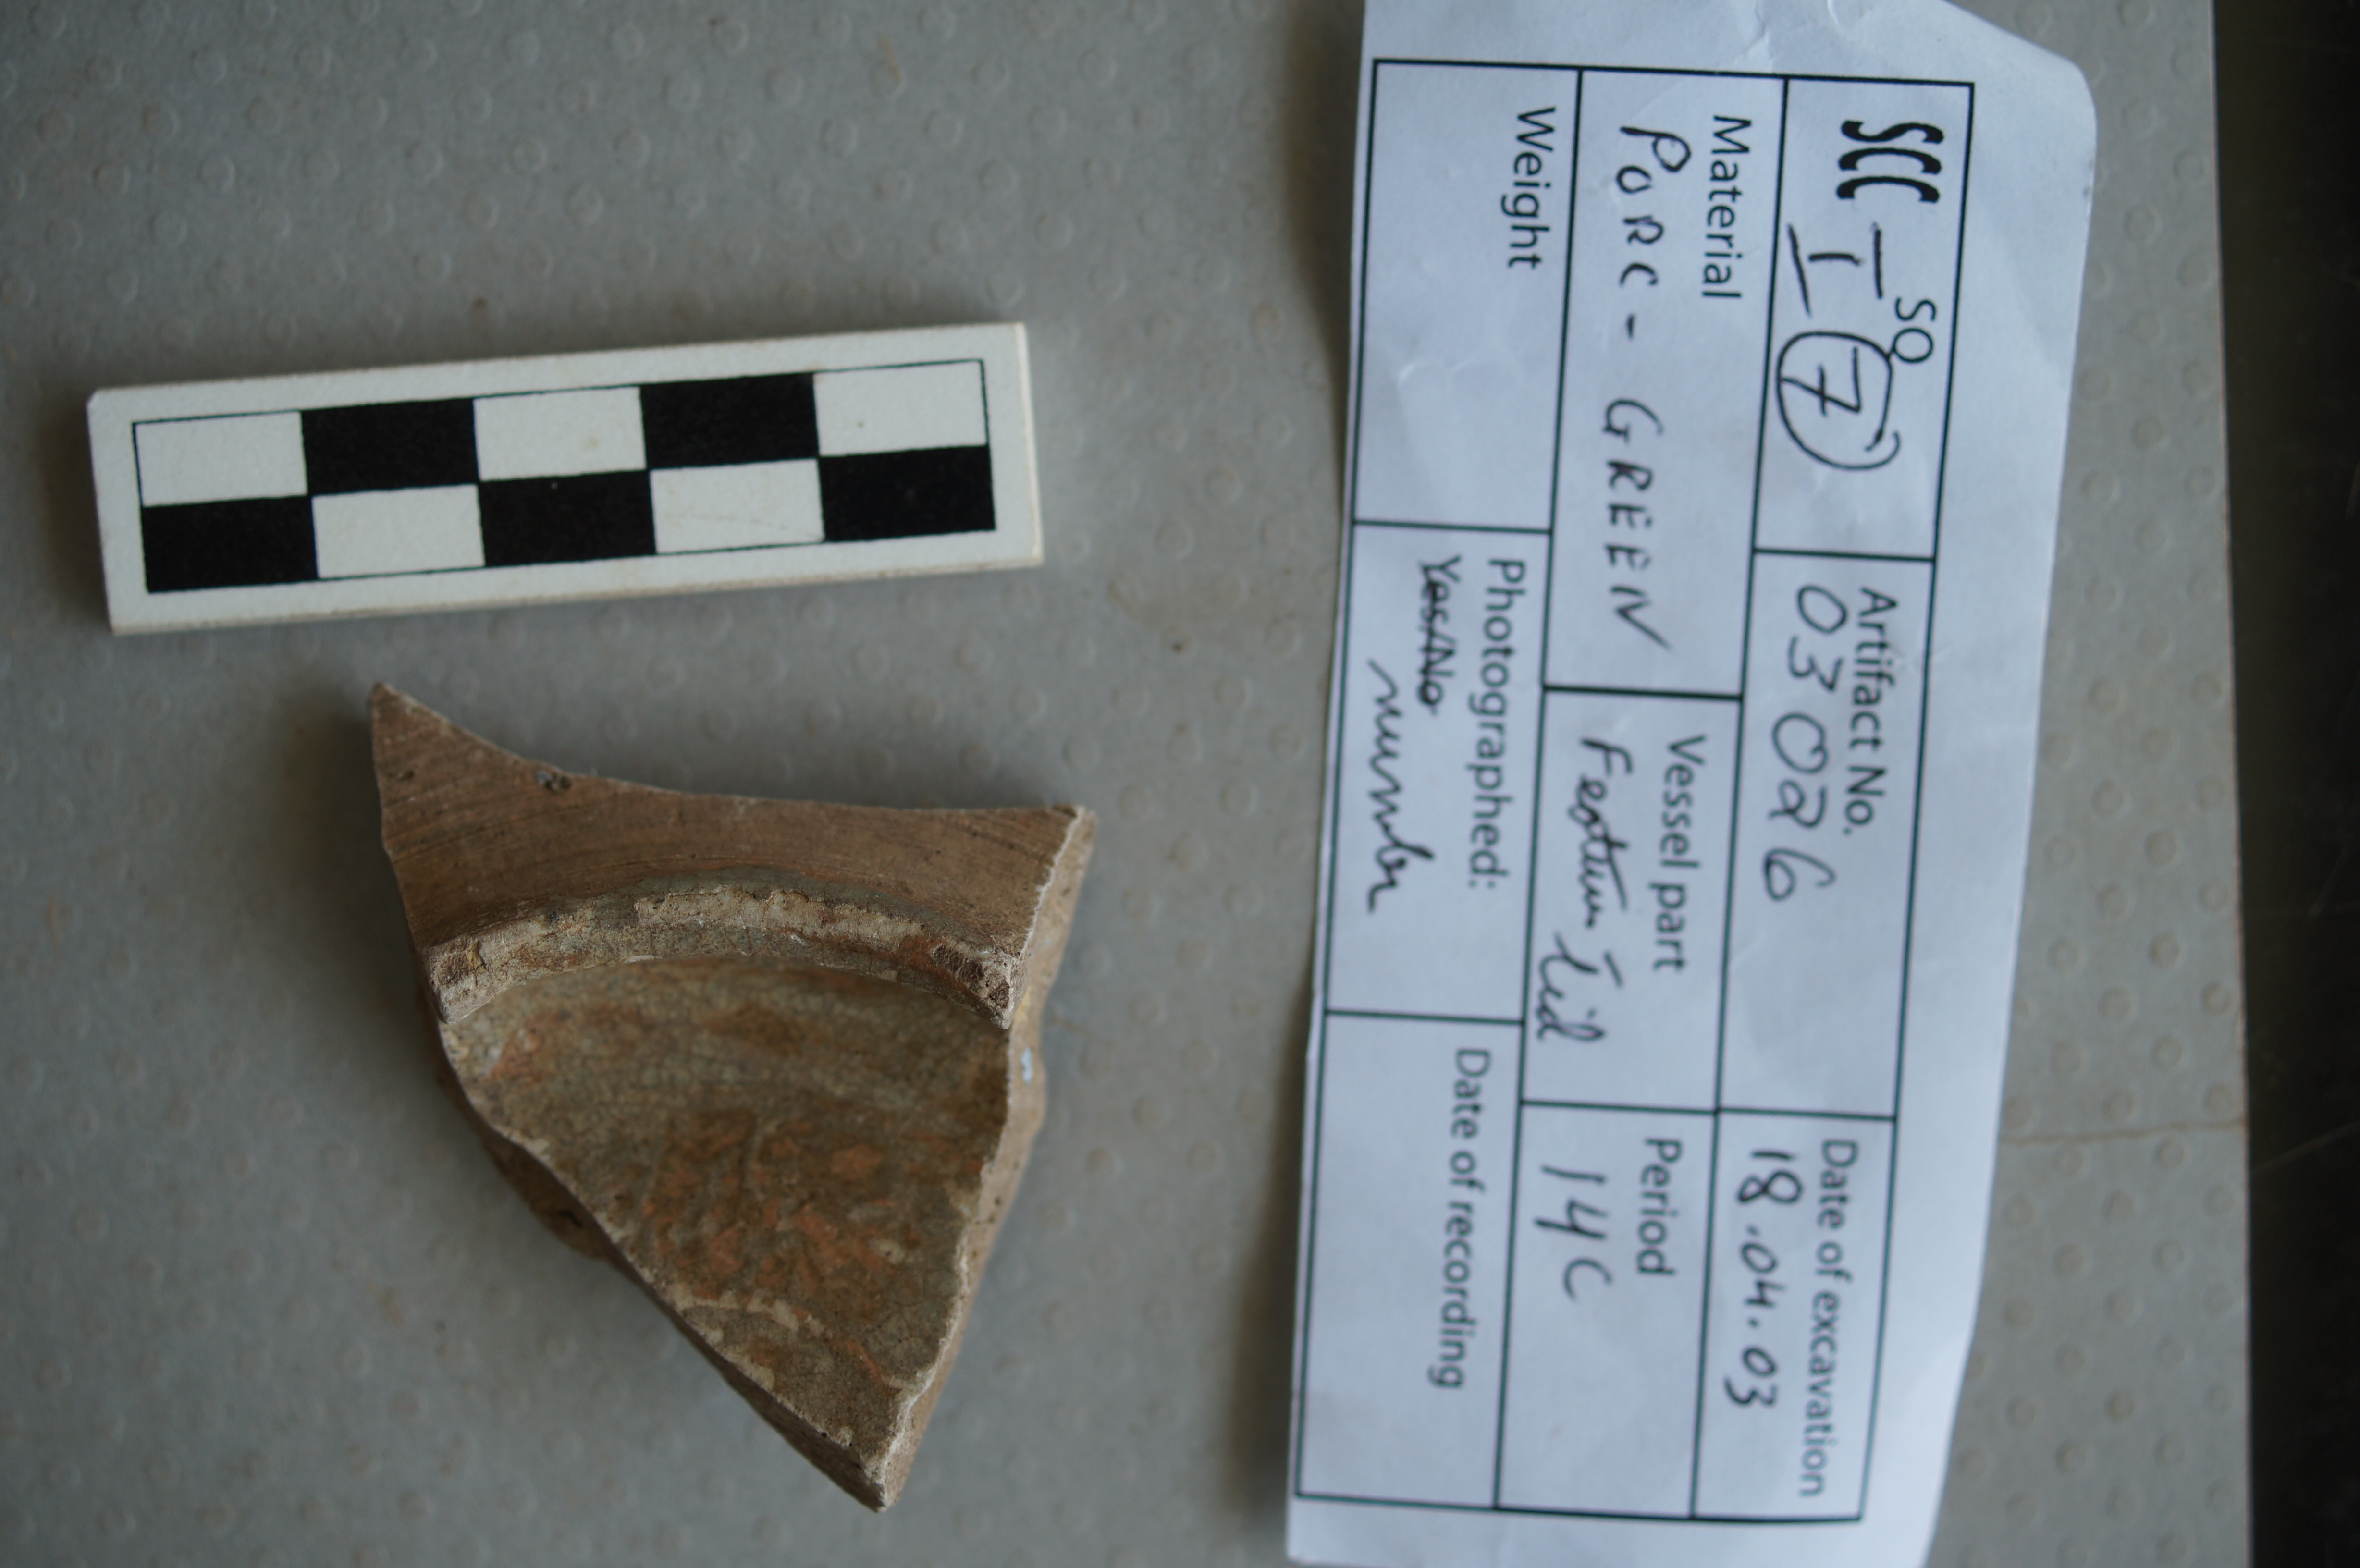 SCC
SQ
I 7
Artifact No.
03026
Date of excavation
18.04.03
Material
PORC - GREEN
Vessel part
Feature Lid
Period
14C
Weight
Photographed:
Yes/No
number
Date of recording